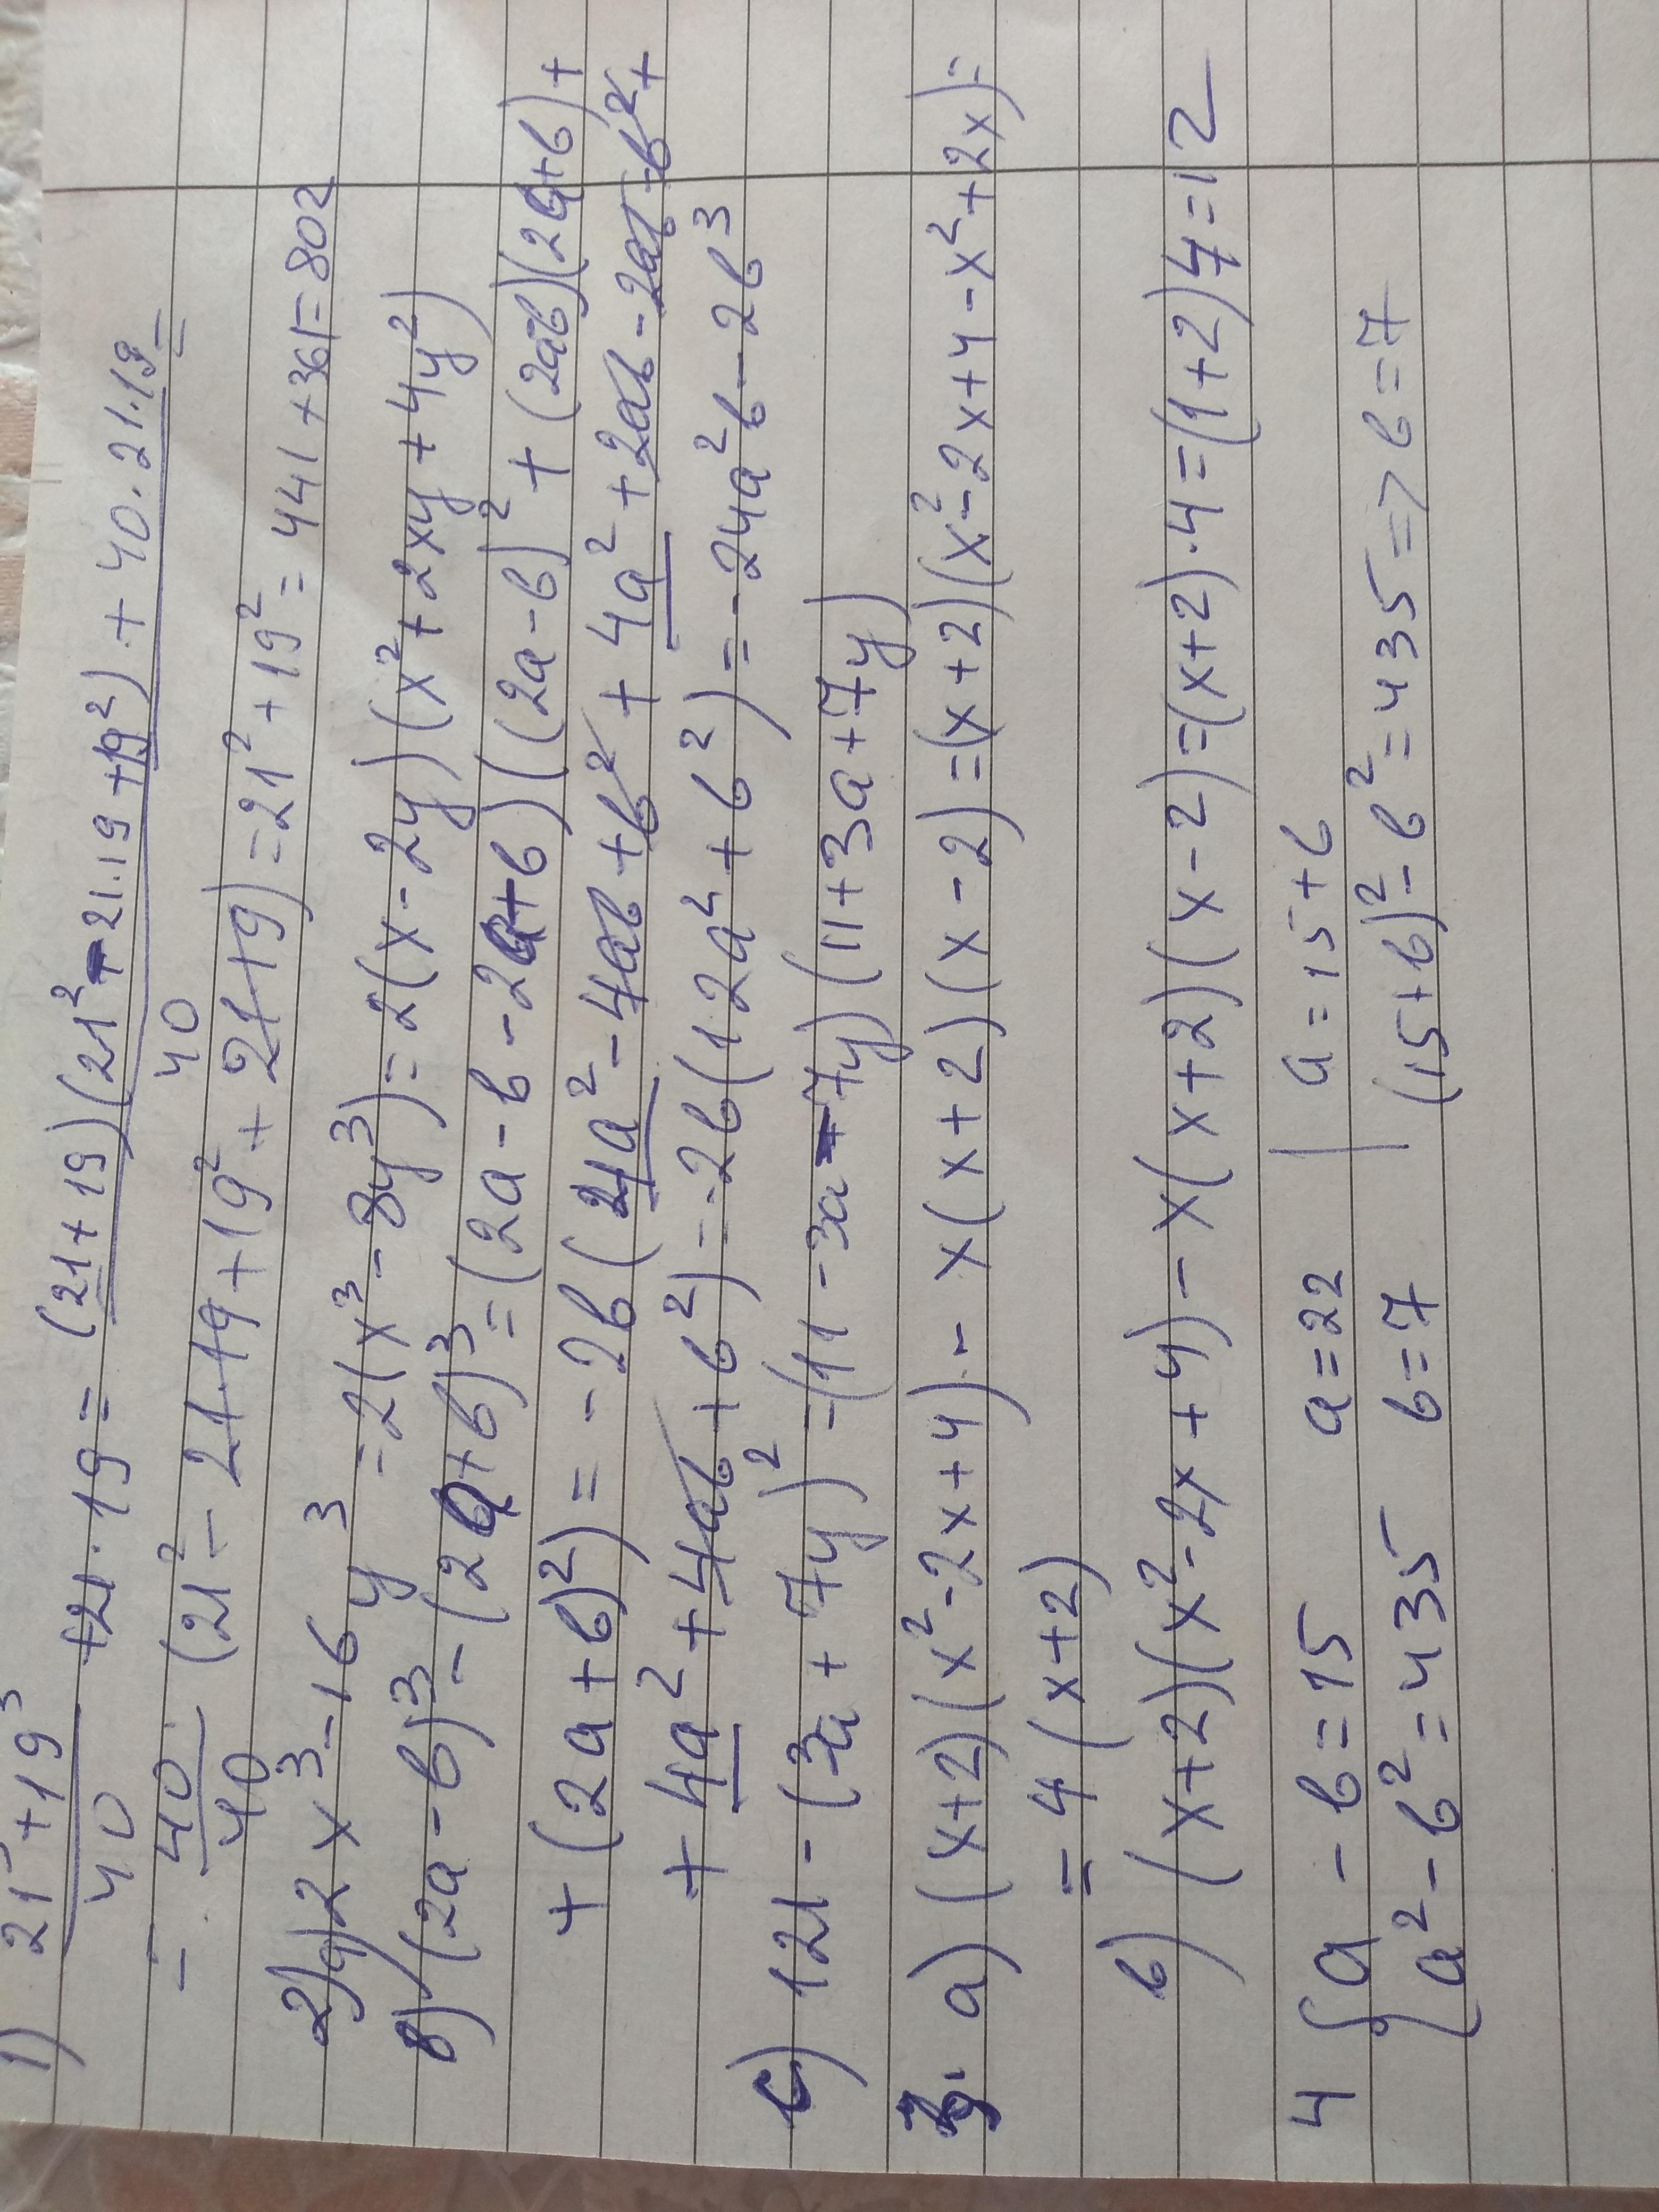 1) 21³+19³/40 + 21·19 = (21+19)(21²-21·19+19²)+40·21·19/40 =
= 40/40 · (21² - 21·19 + 19² + 21·19) = 21² + 19² = 441 + 361 = 802
2) a) 2x³ - 16y³ = 2(x³ - 8y³) = 2(x - 2y)(x² + 2xy + 4y²)
в) (2a - b)³ - (2a + b)³ = (2a - b - 2a + b)((2a - b)² + (2a-b)(2a+b) +
+ (2a + b)²) = -2b(4a² - 4ab + b² + 4a² + 2ab - 2ab - b² +
+ 4a² + 4ab + b²) = -2b(12a² + b²) = -24a²b - 2b³
c) 121 - (3a + 7y)² = (11 - 3a - 7y)(11 + 3a + 7y)
3. a) (x+2)(x² - 2x + 4) - x(x+2)(x-2) = (x+2)(x² - 2x + 4 - x² + 2x) =
= 4(x+2)
b) (x+2)(x² - 2x + 4) - x(x+2)(x-2) = (x+2)·4 = (1+2)4 = 12
4 { a - b = 15 a = 22 | a = 15 + b
{ a² - b² = 435 b = 7 (15+b)² - b² = 435 => b = 7